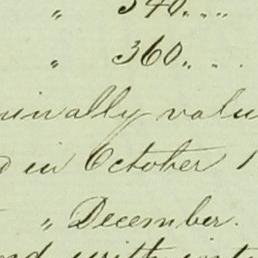 " 340. . . .
" 360. . . .
inally valu
d in October 1
" December.
and with inte